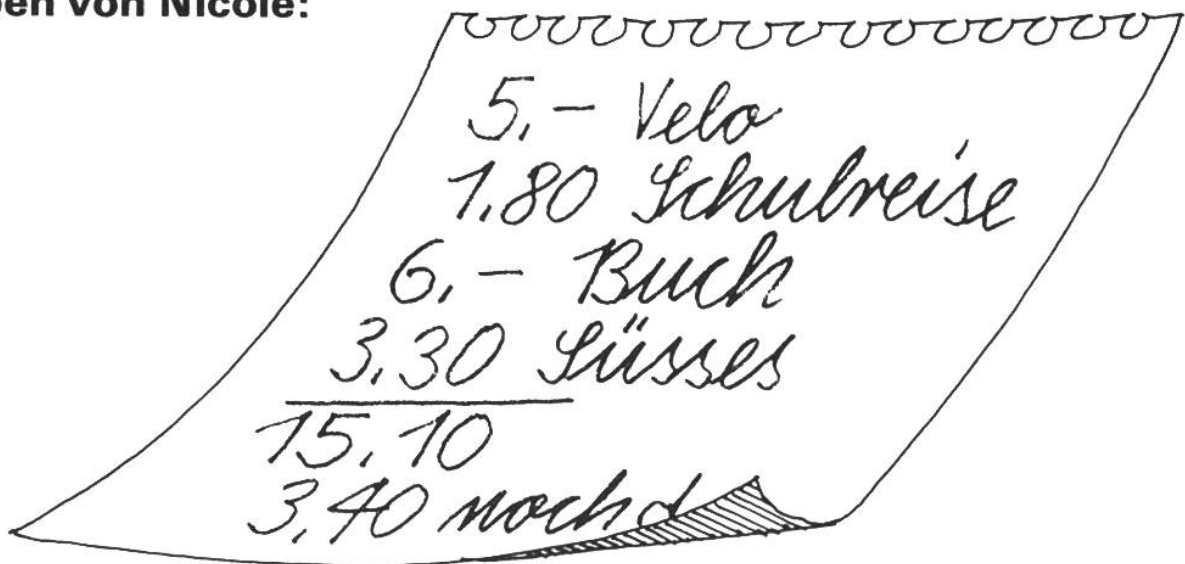 ben von Nicole:
5.– Velo
1.80 Schulreise
6.– Buch
3.30 Süsses
15.10
3.40 noch d